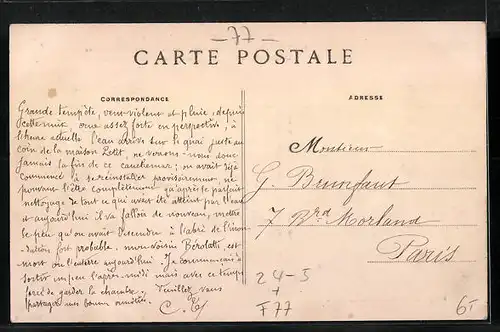 - 77 -
CARTE POSTALE
CORRESPONDANCE
ADRESSE
Grande tempête, vent violent et pluie, depuis
cette nuit, crue assez forte en perspective, à
l'heure actuelle l'eau arrive sur le quai juste au
coin de la maison Petit, ne verrons-nous donc
jamais la fin de ce cauchemar; on avait déjà
commencé à se réinstaller provisoirement, ne
pouvant l'être complètement qu'après le parfait
nettoyage de tout ce qui avait été atteint par l'eau
et aujourd'hui il va falloir de nouveau, mettre
le peu qu'on avait descendu à l'abri de l'inon-
dation, fort probable. mon voisin est
mort on l'enterre aujourd'hui. Je commençais à
sortir un peu l'après-midi mais avec ce temps
forcé de garder la chambre. Veuillez vous
partager mes bonnes amitiés.
Monsieur
G. Brunfaut
7 Bd Morland
Paris
24-5
+
F77
6F